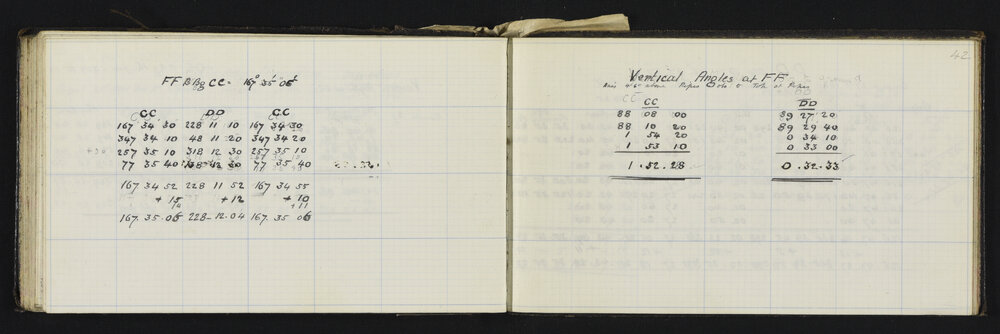 FF B Bg CC = 167° 35' 06"
CC DD CC
167 34 30 228 11 10 167 34 30
347 34 10 48 11 20 347 34 20
257 35 10 318 12 30 257 35 10
77 35 40 138 12 30 77 35 40
167 34 52 228 11 52 167 34 55
+ 15 + 12 + 10
14 + 11
167. 35. 06 228 - 12. 04 167. 35 06
42
Vertical Angles at FF
CC DD
88 08 00 89 27 20
88 10 20 89 29 40
1 54 20 0 34 10
1 53 10 0 33 00
1 . 52 . 28 0 . 32 . 33